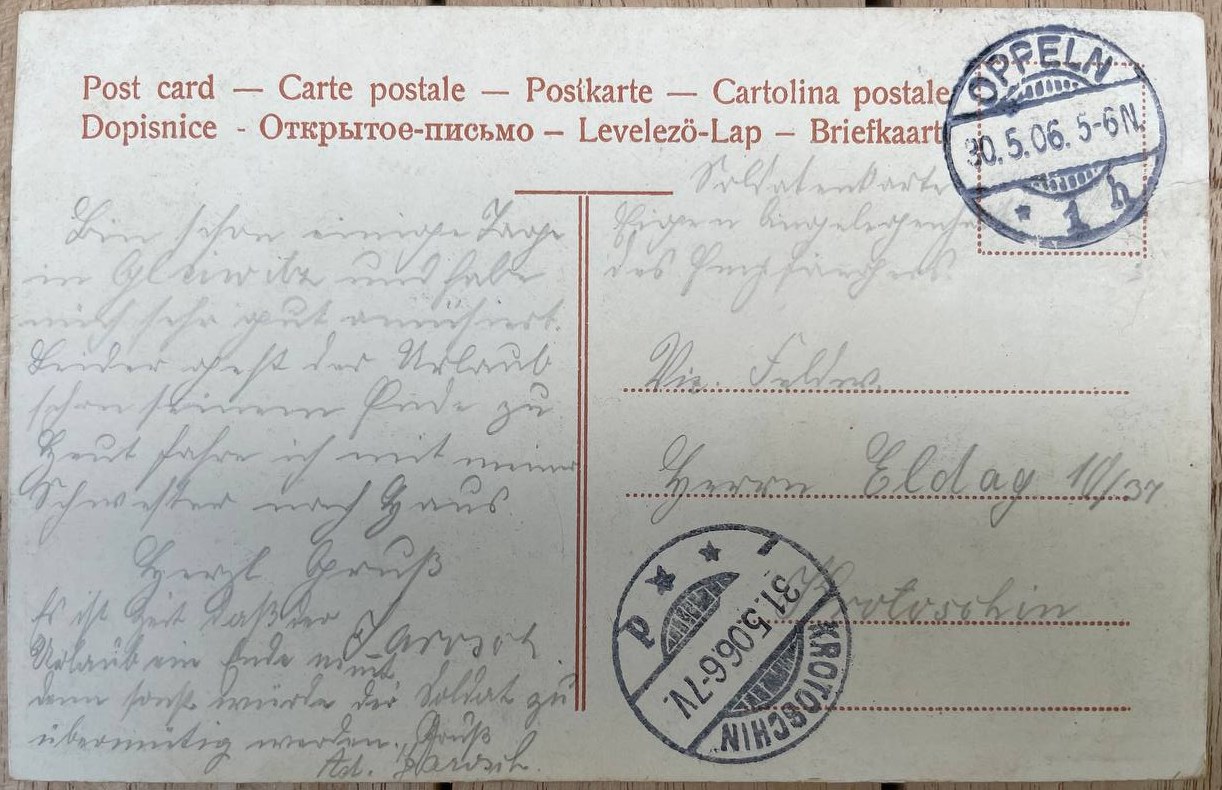 Post card — Carte postale — Postkarte — Cartolina postale
Dopisnice - Открытое-письмо – Levelezö-Lap – Briefkaart
OPPELN
30.5.06. 5-6N.
* 1 h
Soldatenkarte
Eigen Angelegenheit
des Empfängers
Viz. Feldw.
Herrn Eldag 10/37
Krotoschin
KROTOSCHIN
31.5.06.6-7V.
* * P
Bin schon einige Tage
in Gleiwitz und habe
mich sehr gut amüsiert.
Leider geht der Urlaub
schon seinem Ende zu
Heut fahre ich mit meiner
Schwester nach Haus.
Herzl Gruß
Es ist Zeit daß der
Urlaub ein Ende nimt,
denn sonst würde der Soldat zu
übermütig werden. Gruß